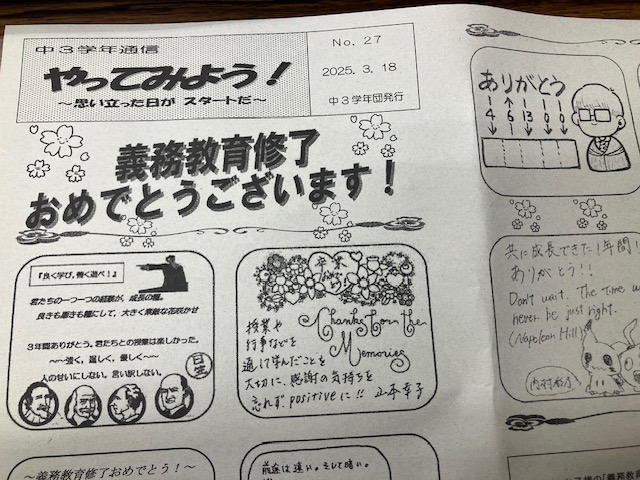 中3学年通信
やってみよう！
～思い立った日が スタートだ～
No. 27
2025. 3. 18
中3学年団発行
義務教育修了
おめでとうございます！
『良く学び,善く遊べ！』
君たちの一つ一つの経験が, 成長の種。
良きも悪きも糧にして, 大きく素敵な花咲かせ
3年間ありがとう。君たちとの授業は楽しかった。
～～強く, 逞しく, 優しく～～
人のせいにしない。言い訳しない。
卒業
おめでとう
Thanks for the
Memories
授業や
行事などを
通して学んだことを
大切に、感謝の気持ちを
忘れず positiveに!! 山本幸子
ありがとう
4 6 13 10 10
共に成長できた1年間！
ありがとう!!
Don't wait. The time w
never be just right.
(Napoleon Hill)
～義務教育修了おめでとう！～
前途は遠い。そして暗い。
の「義務教育